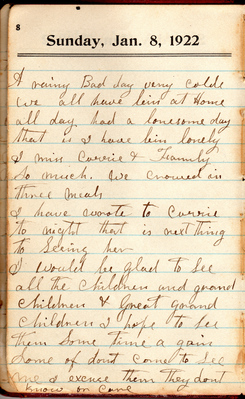 8
Sunday, Jan. 8, 1922
A rainy Bad day very colde
we all have bin at Home
all day had a lonesome day
that is I have bin lonely
I miss Carrie & Family
so much. We crowed in
three meals
I have wrote to Carrie
to night that is next thing
to seeing her
I would be glad to see
all the children and grand
children & great grand
children I hope to see
them some time a gain
some of dont come to see
me I excuse them they dont
know or care